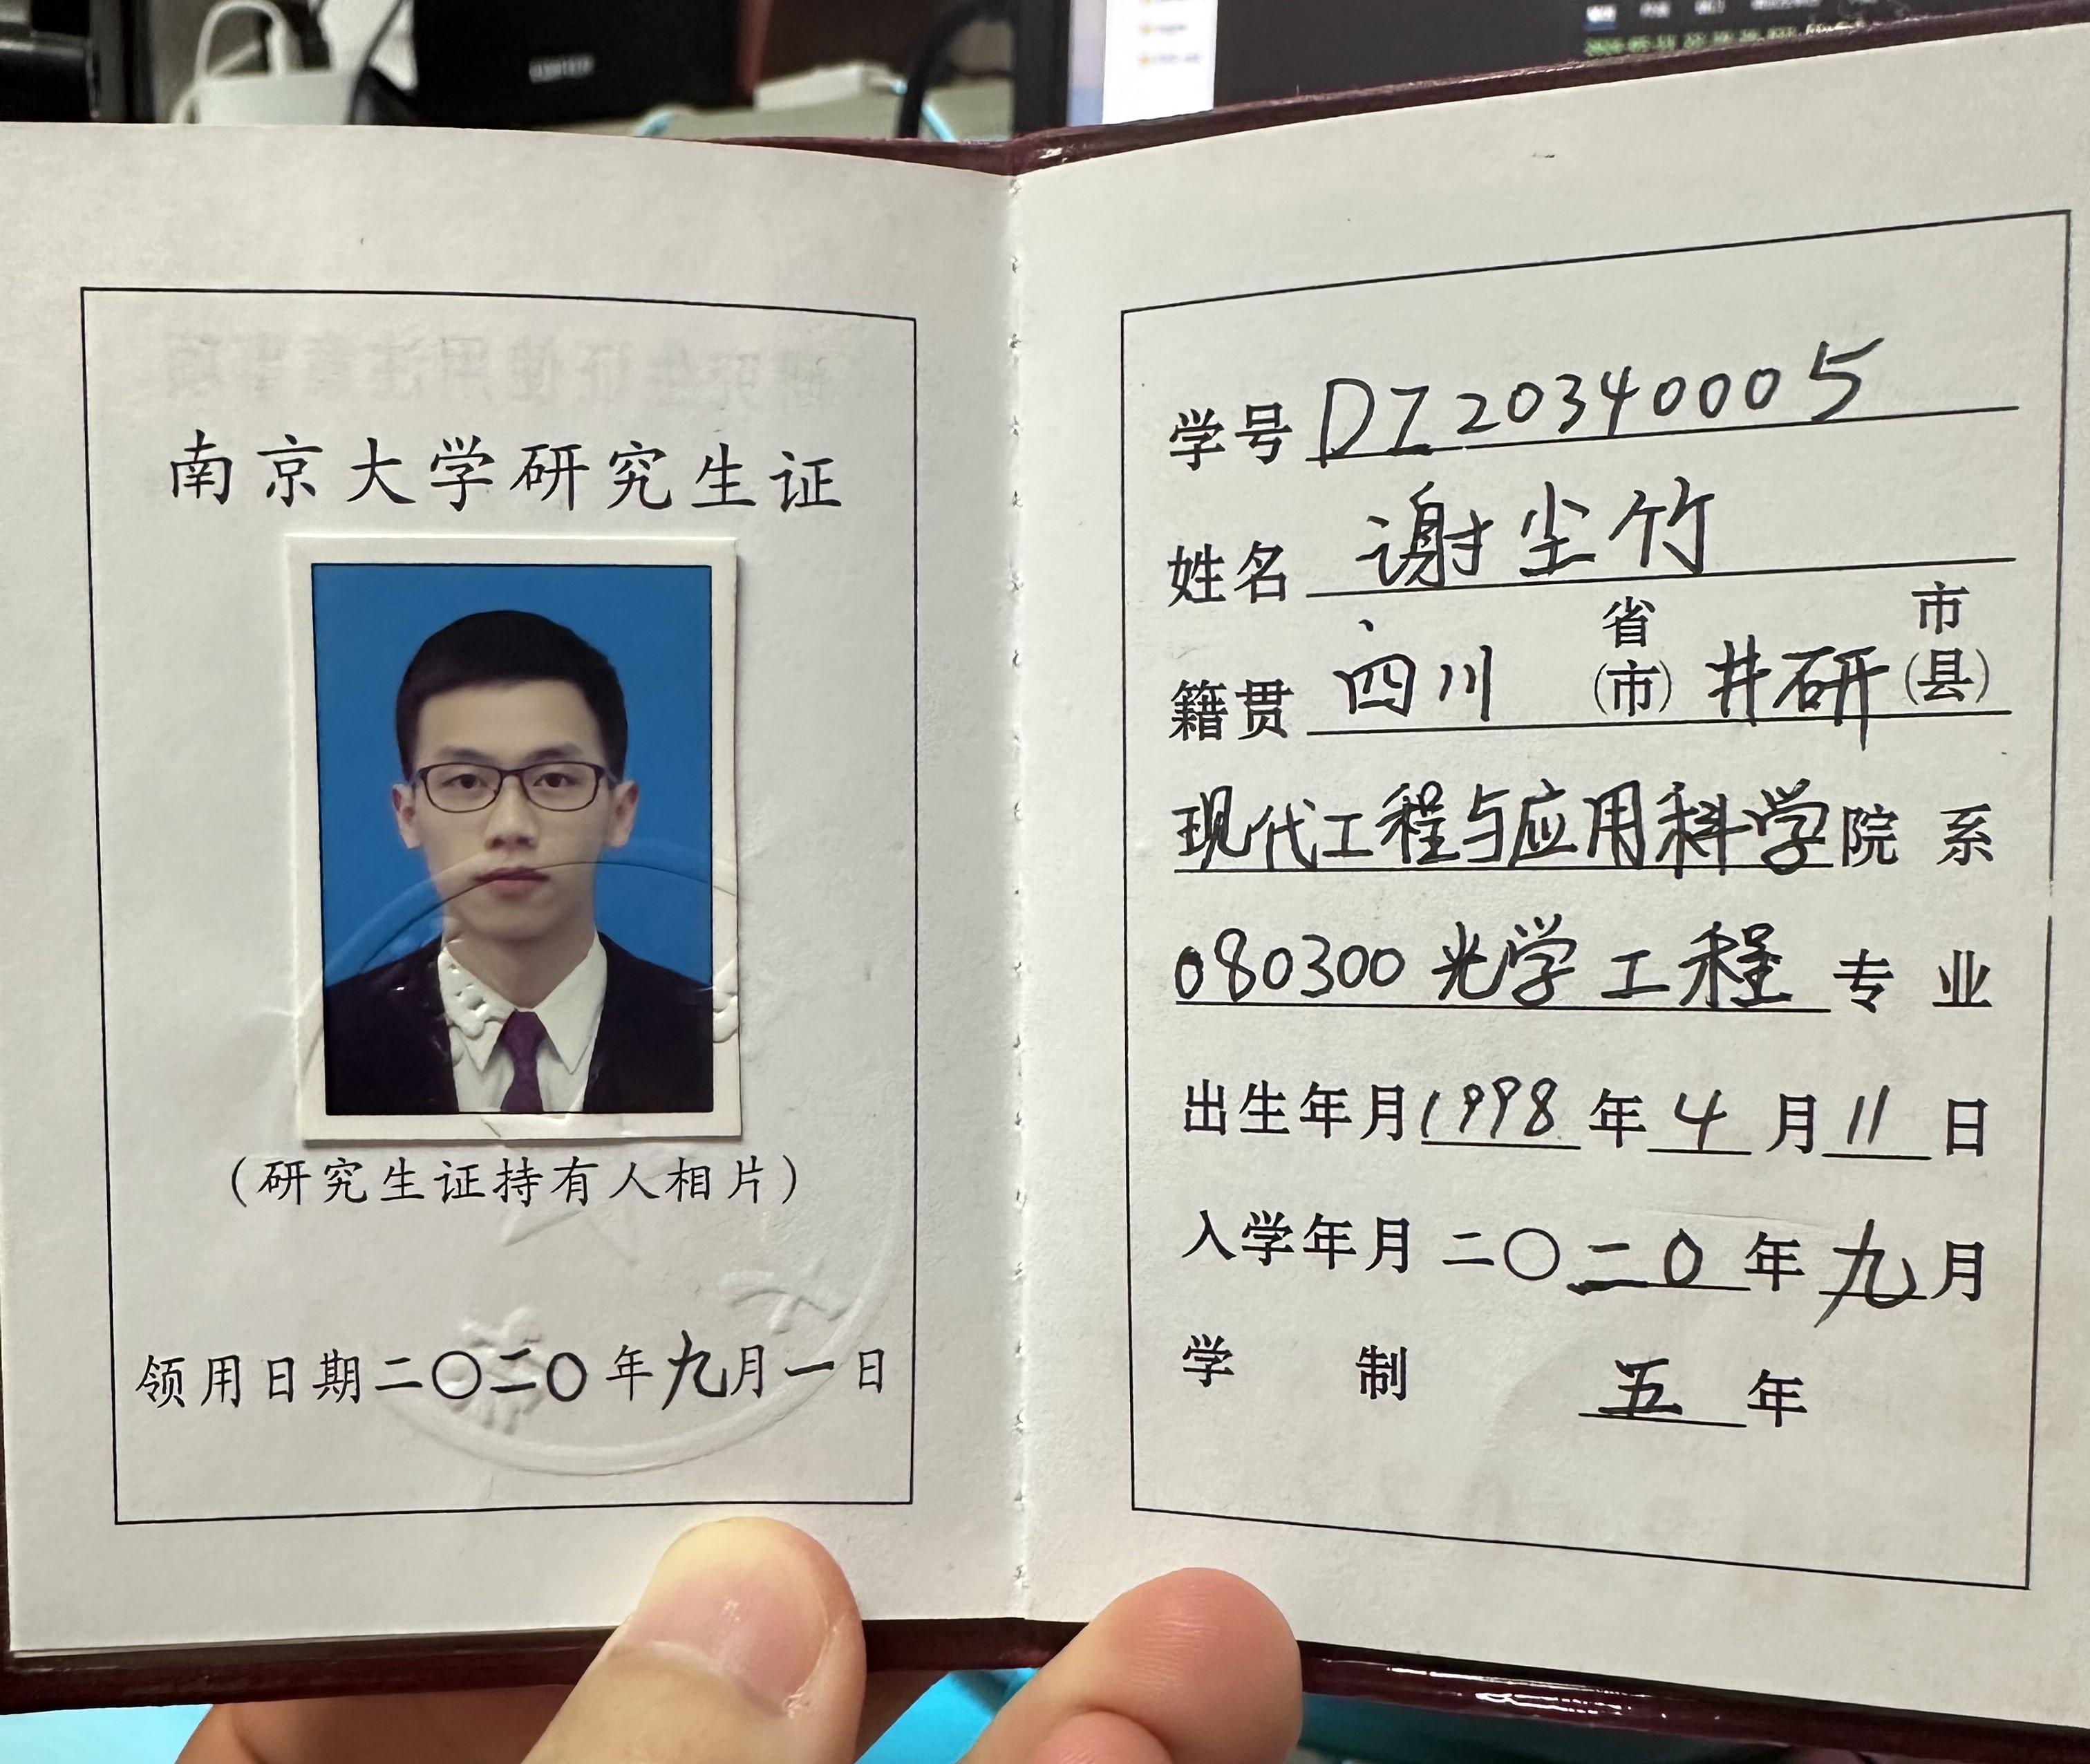 南京大学研究生证
(研究生证持有人相片)
领用日期二〇二〇年九月一日
学号 DZ20340005
姓名 谢尘竹
籍贯 四川 省(市) 井研 市(县)
现代工程与应用科学院系
080300 光学工程 专业
出生年月 1998 年 4 月 11 日
入学年月 二〇二〇年九月
学制 五年